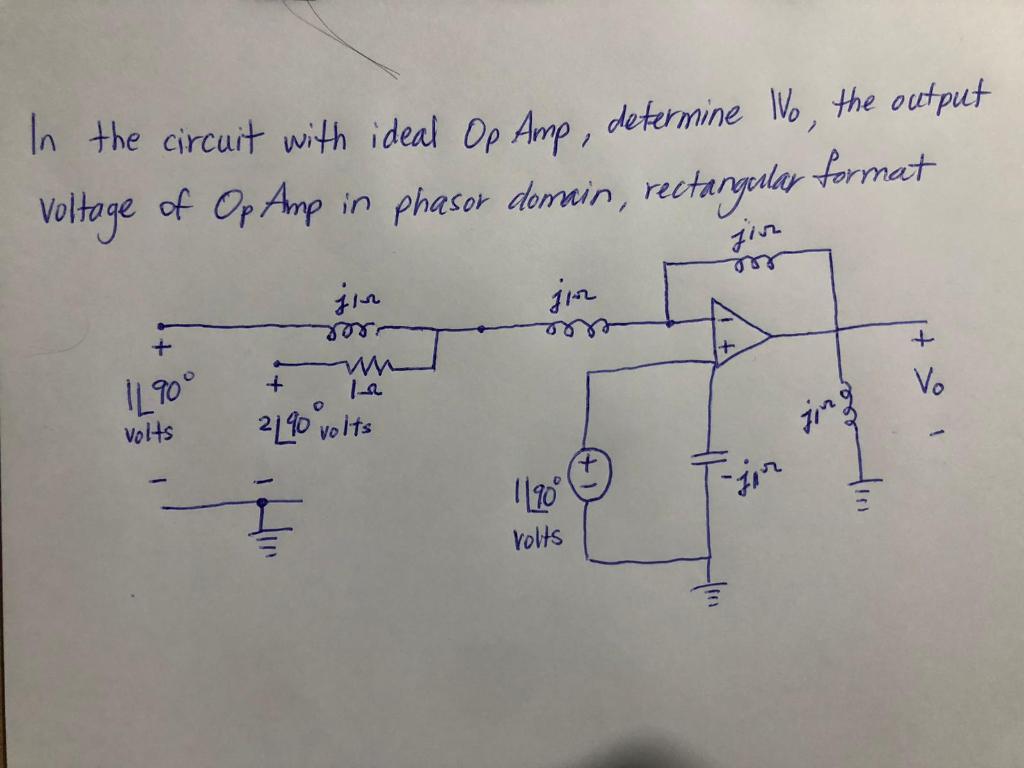 In the circuit with ideal Op Amp, determine Vo, the output
voltage of Op Amp in phasor domain, rectangular format
j1Ω
j1Ω
j1Ω
-
+
+
1∠90°
volts
-
+
1Ω
2∠90° volts
-
+
-
1∠90°
volts
-j1Ω
j1Ω
+
Vo
-